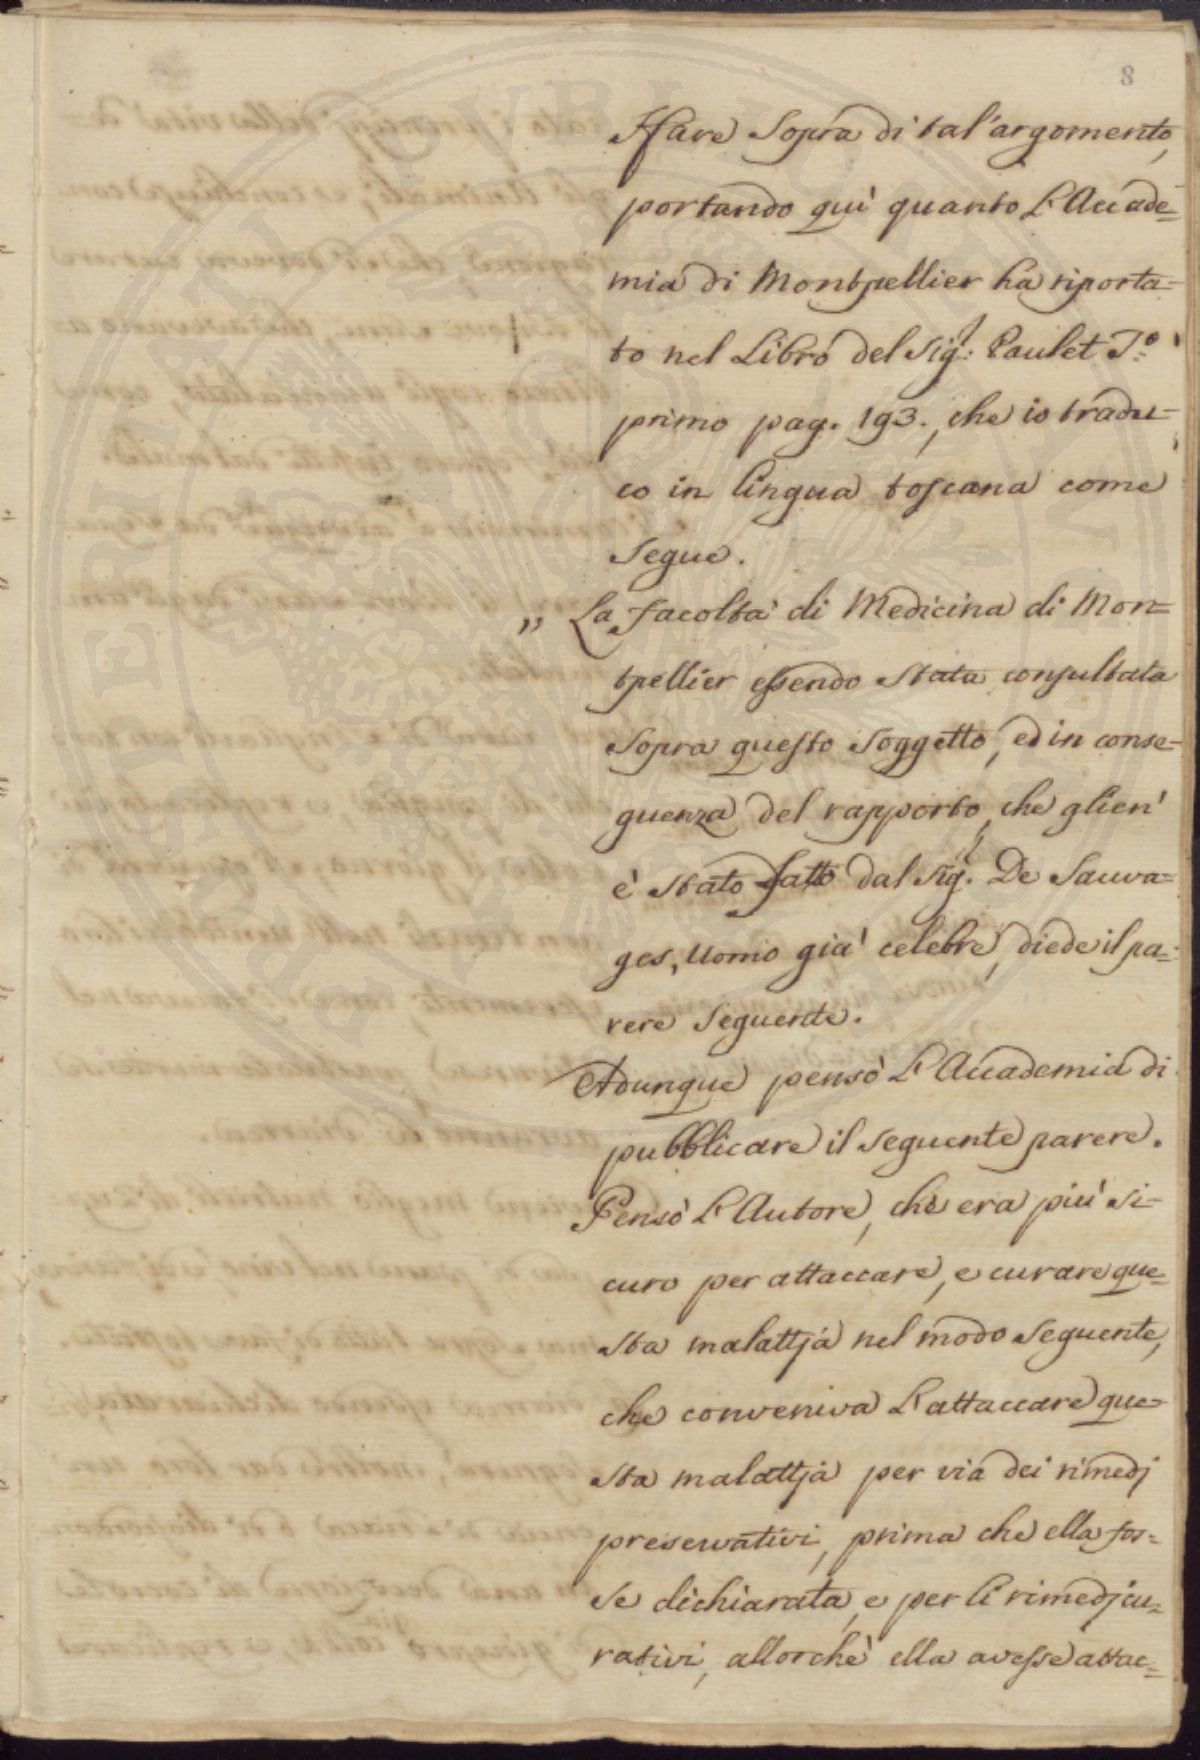 8
ffare sopra di tal'argomento,
portando quì quanto L'Accade=
mia di Montpellier ha riporta=
to nel Libro del Sig.r Paulet T.o
primo pag. 193., che io tradu=
co in lingua toscana come
segue.
„ La Facoltà di Medicina di Mon=
tpellier essendo stata consultata
sopra questo soggetto, ed in conse=
guenza del rapporto, che glien'
è stato fatto dal Sig.r De Sauva=
ges, Uomo già celebre, diede il pa=
rere seguente.
Adunque pensò L'Accademia di
pubblicare il seguente parere.
Pensò L'Autore, che era più si=
curo per attaccare, e curare que=
sta malattja nel modo seguente,
che conveniva L'attaccare que=
sta malattja per via dei rimedj
preservativi, prima che ella fos=
se dichiarata, e per li rimedj cu=
rativi, allorchè ella avesse attac=